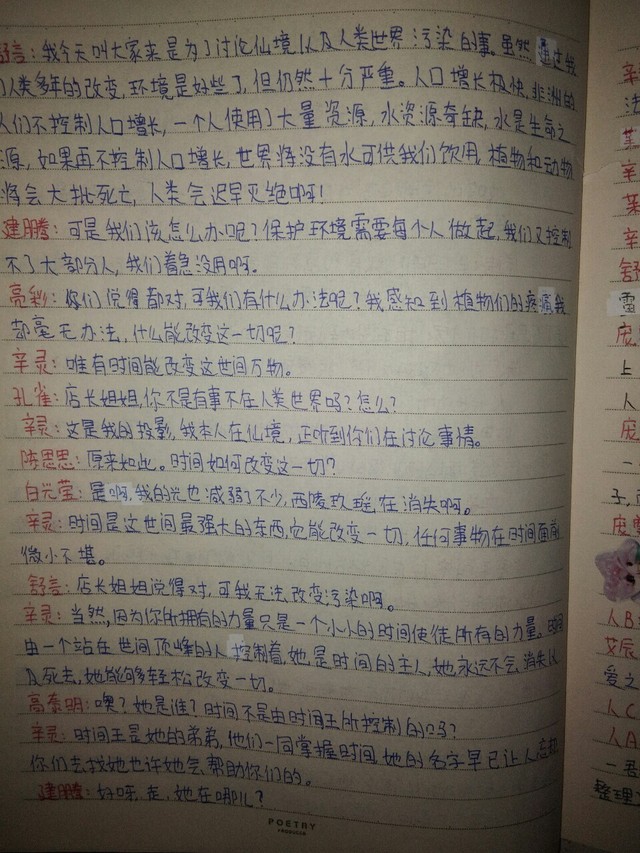 舒言：我今天叫大家来是为了讨论仙境以及人类世界污染的事。虽然通过我
们人类多年的改变，环境是好些了，但仍然十分严重。人口增长极快，非洲的
人们不控制人口增长，一个人使用了大量资源，水资源奇缺，水是生命之
源，如果再不控制人口增长，世界将没有水可供我们饮用，植物和动物
将会大批死亡，人类会迟早灭绝啊！
建鹏：可是我们该怎么办呢？保护环境需要每个人做起，我们又控制
不了大部分人，我们着急没用啊。
亮彩：你们说得都对，可我们有什么办法呢？我感知到植物们的疼痛我
却毫无办法，什么能改变这一切呢？
辛灵：唯有时间能改变这世间万物。
孔雀：店长姐姐，你不是有事不在人类世界吗？怎么？
辛灵：这是我的投影，我本人在仙境，正听到你们在讨论事情。
陈思思：原来如此。时间如何改变这一切？
白光莹：是啊，我的光也减弱了不少，西陵玖瑶，在消失啊。
辛灵：时间是这世间最强大的东西，它能改变一切，任何事物在时间面前
微小不堪。
舒言：店长姐姐说得对，可我无法改变污染啊。
辛灵：当然，因为你所拥有的力量只是一个小小的时间使徒所有的力量。时间
由一个站在世间顶峰的人控制着，她是时间的主人，她永远不会消失以
及死去，她能够轻松改变一切。
高泰明：噢？她是谁？时间不是由时间王所控制的吗？
辛灵：时间王是她的弟弟，他们一同掌握时间，她的名字早已让人忘却
你们去找她也许她会帮助你们的。
建鹏：好呀，走，她在哪儿？
POETRY
辛
法
茉
辛
茉
辛
舒
雷
庞
上
人
庞
一
子，
庞
人B
艾辰
爱之
人C
人A
一君
整理